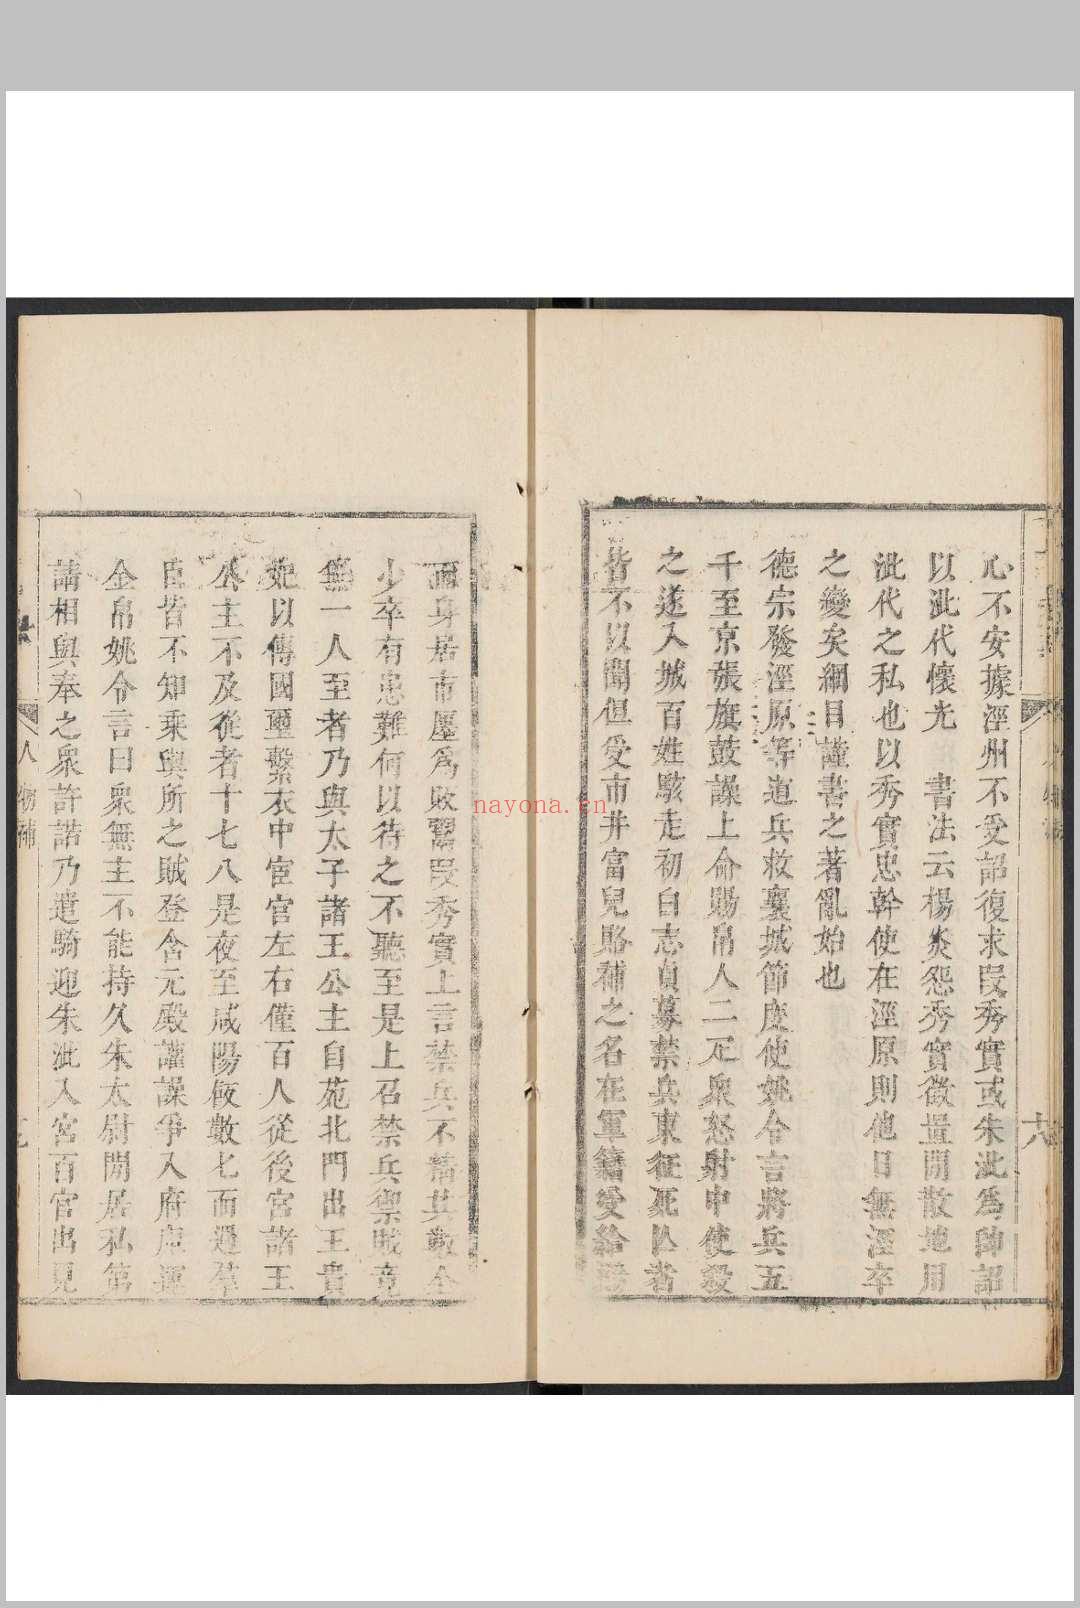 心不安據涇州不受詔復求段秀實或朱泚爲帥詔
以泚代懷光　書法云楊炎怨秀實徵置閒散地用
泚代之私也以秀實忠幹使在涇原則他日無涇卒
之變矣綱目謹書之著亂始也
德宗發涇原等道兵救襄城節度使姚令言將兵五
千至京張旗鼓譟上命賜帛人二疋衆怒射中使殺
之遂入城百姓駭走初白志貞募禁兵東征死亾者
皆不以聞但受市井富兒賂補之名在軍籍受給賜
而身居市廛爲販鬻段秀實上言禁兵不精其數全
少卒有患難何以待之不聽至是上召禁兵禦賊竟
無一人至者乃與太子諸王公主自苑北門出王貴
妃以傳國璽繫衣中宦官左右僅百人從後宮諸王
公主不及從者十七八是夜至咸陽飯數匕而過羣
臣皆不知乗輿所之賊登含元殿讙譟爭入府庫運
金帛姚令言曰衆無主不能持久朱太尉閒居私第
請相與奉之衆許諾乃遣騎迎朱泚入宮百官出見
人物補
nayona.cn